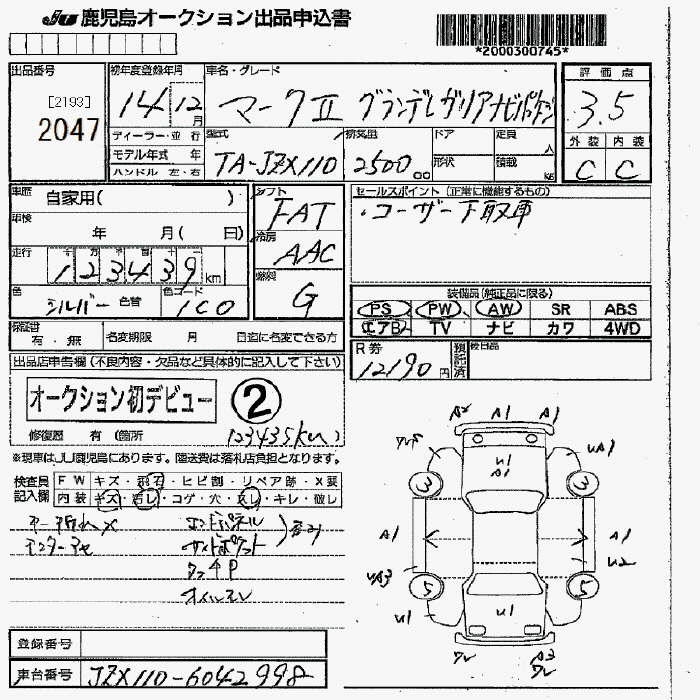 JU 鹿児島オークション出品申込書
*2000300745*
出品番号
[2193]
2047
初年度登録年月
14 12月
車名・グレード
マークⅡ グランデレガリアナビパッケージ
評価点
3.5
外装 内装
C C
ディーラー・並行
モデル年式 年
ハンドル 左・右
型式
TA-JZX110
排気量
2500 cc
ドア
形状
定員 人
積載 kg
車歴 自家用( )
車検 年 月( 日)
走行 十 万 千 百 十 一
123439 km
色 シルバー 色替 色コード 1C0
シフト
FAT
冷房
AAC
燃料
G
セールスポイント(正常に機能するもの)
・ユーザー下取車
装備品(純正品に限る)
PS PW AW SR ABS
エアB TV ナビ カワ 4WD
保証書 有・無 名変期限 月 日迄に名変できる方
R券
12190円
預託済
後日品
出品店申告欄(不良内容・欠品など具体的に記入して下さい)
オークション初デビュー
②
修復歴 有(箇所 123435km)
※現車はJU鹿児島にあります。陸送費は落札店負担となります。
検査員記入欄
FW キズ・飛石・ヒビ割・リペア跡・X要
内装 キズ・汚レ・コゲ・穴・スレ・キレ・破レ
キー折れ×
エンドパネル
サイドポケット
タッチP
オイルモレ
A2 A1 A1
U1
A1
UA1
3 3
A1 A1
UA3 U2
5 5
U1 U1 U1
A3
登録番号
車台番号 JZX110-6042998